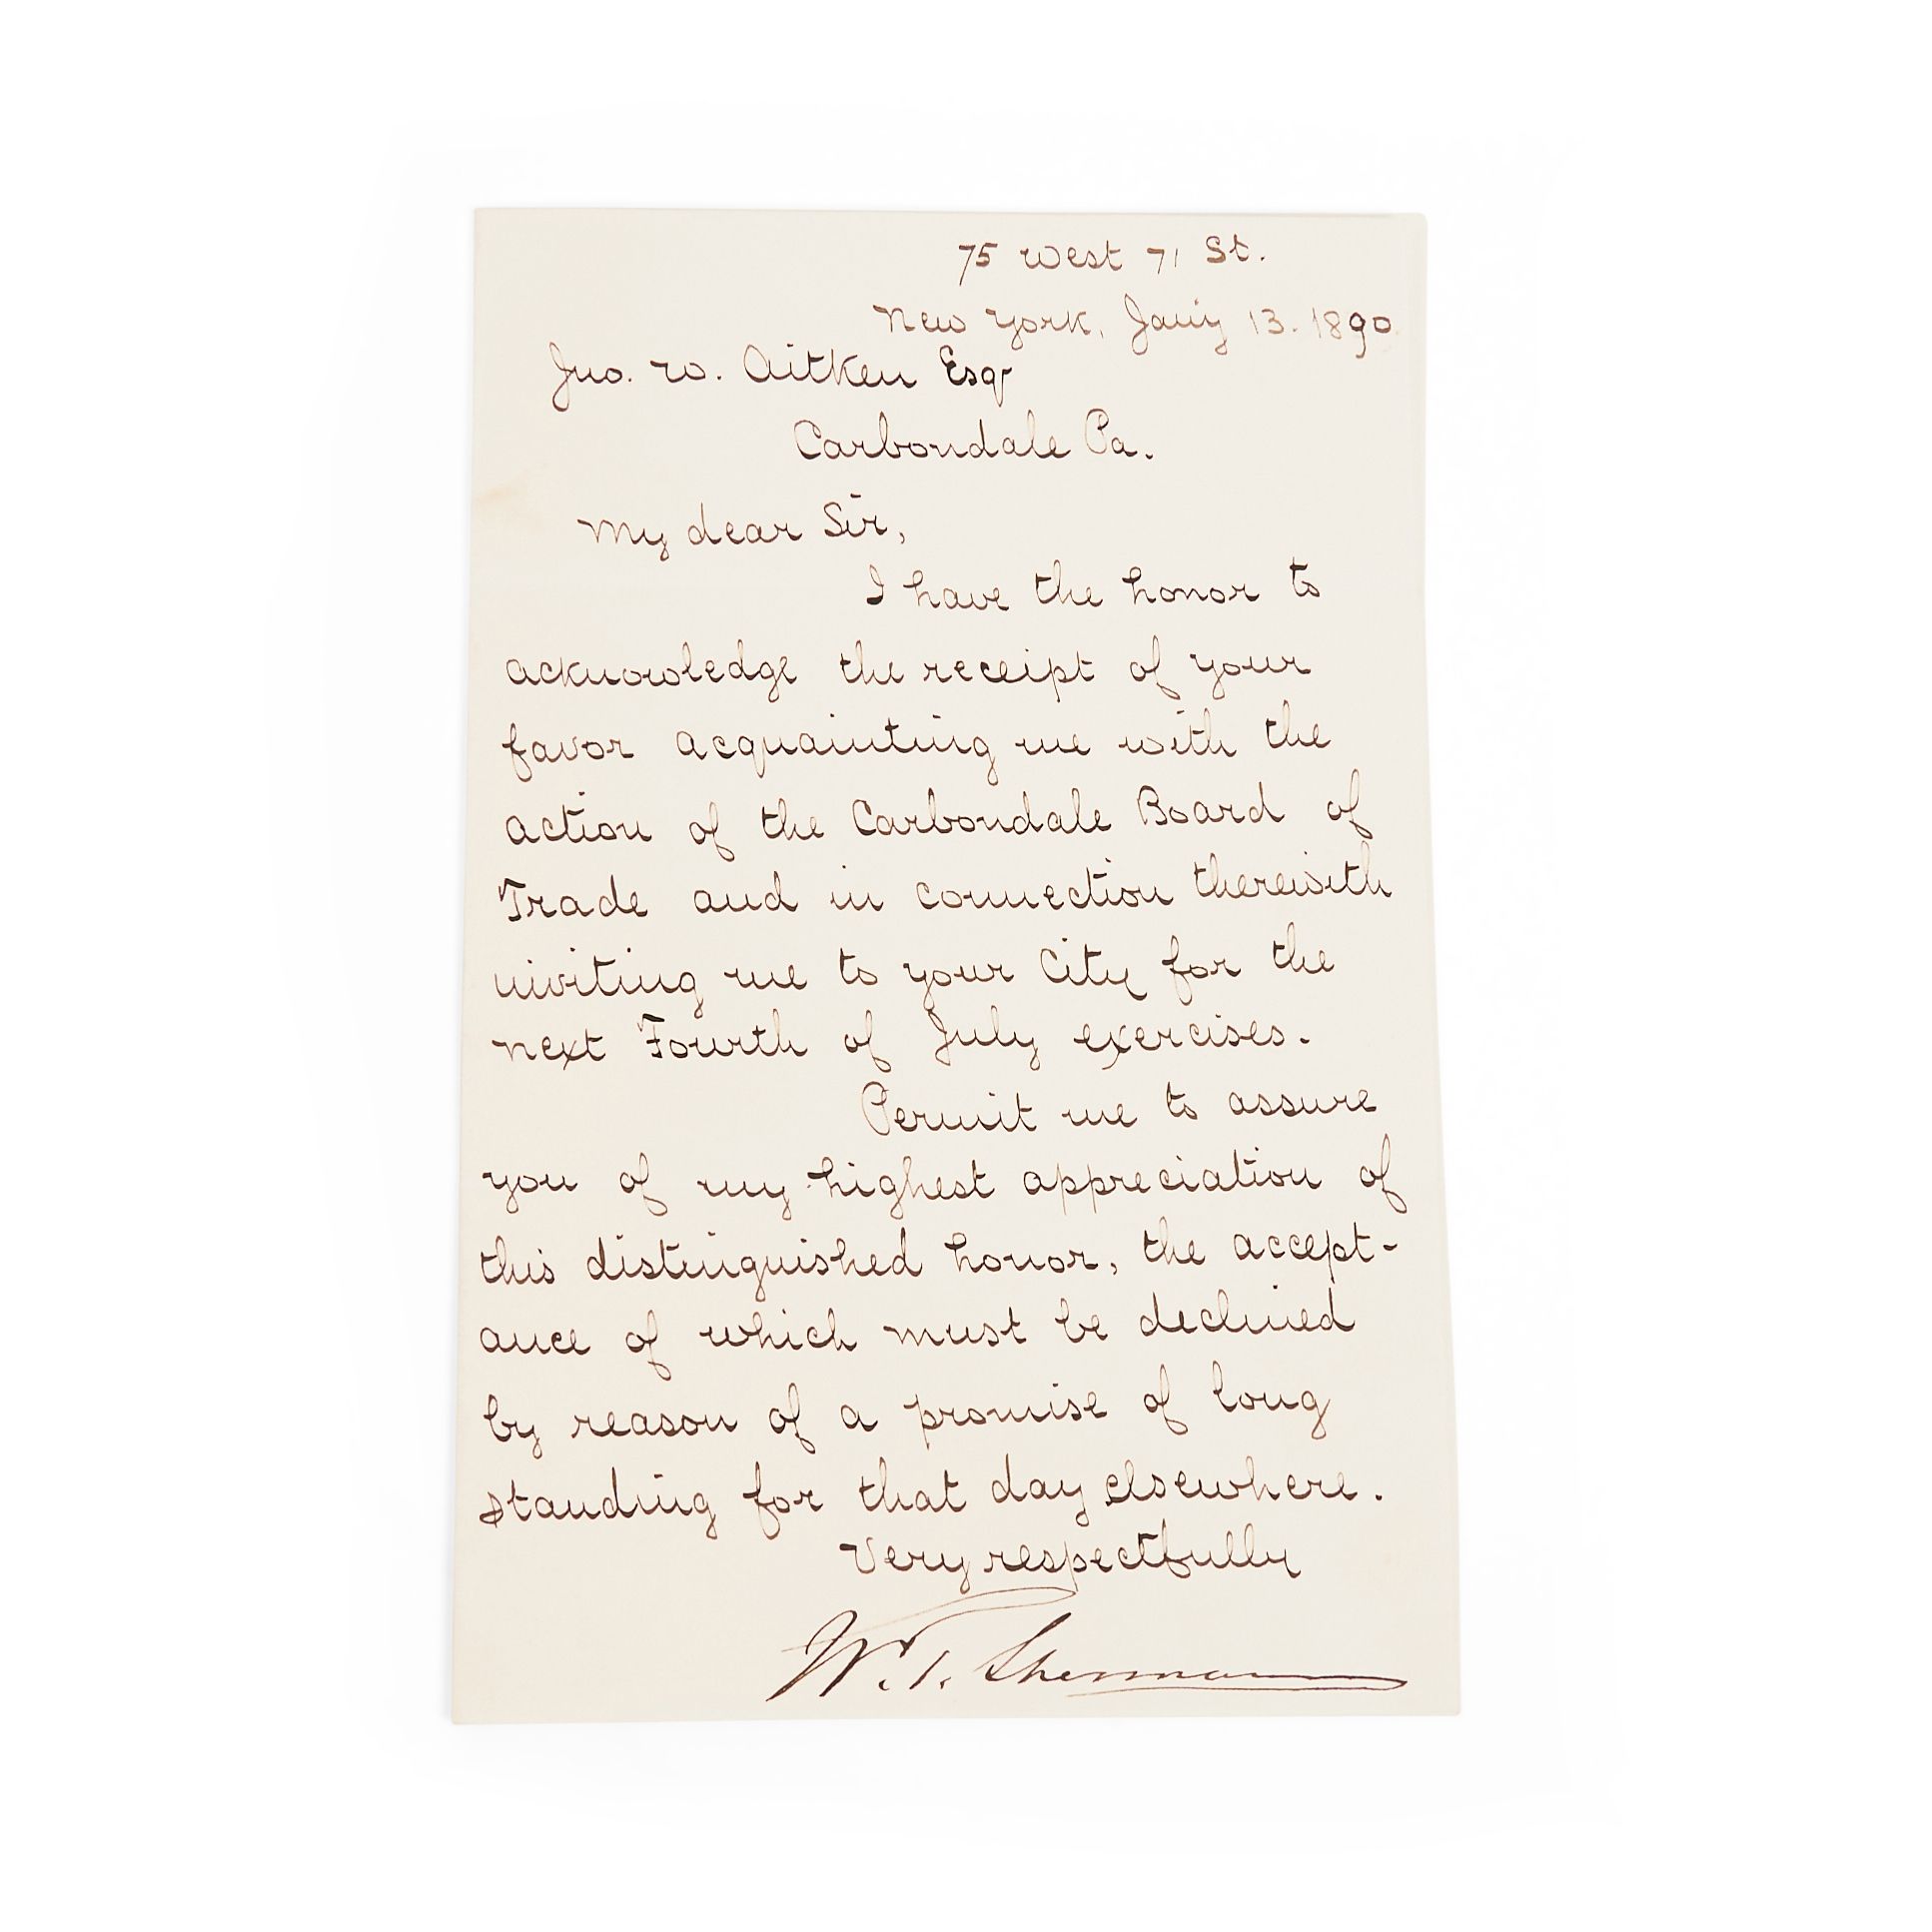 75 West 71 St.
New York, Jan'y 13. 1890.
Jno. W. Aitken Esqr
Carbondale Pa.
My dear Sir,
I have the honor to
acknowledge the receipt of your
favor acquainting me with the
action of the Carbondale Board of
Trade and in connection therewith
inviting me to your City for the
next Fourth of July exercises.
Permit me to assure
you of my highest appreciation of
this distinguished honor, the accept-
ance of which must be declined
by reason of a promise of long
standing for that day elsewhere.
Very respectfully
W. T. Sherman